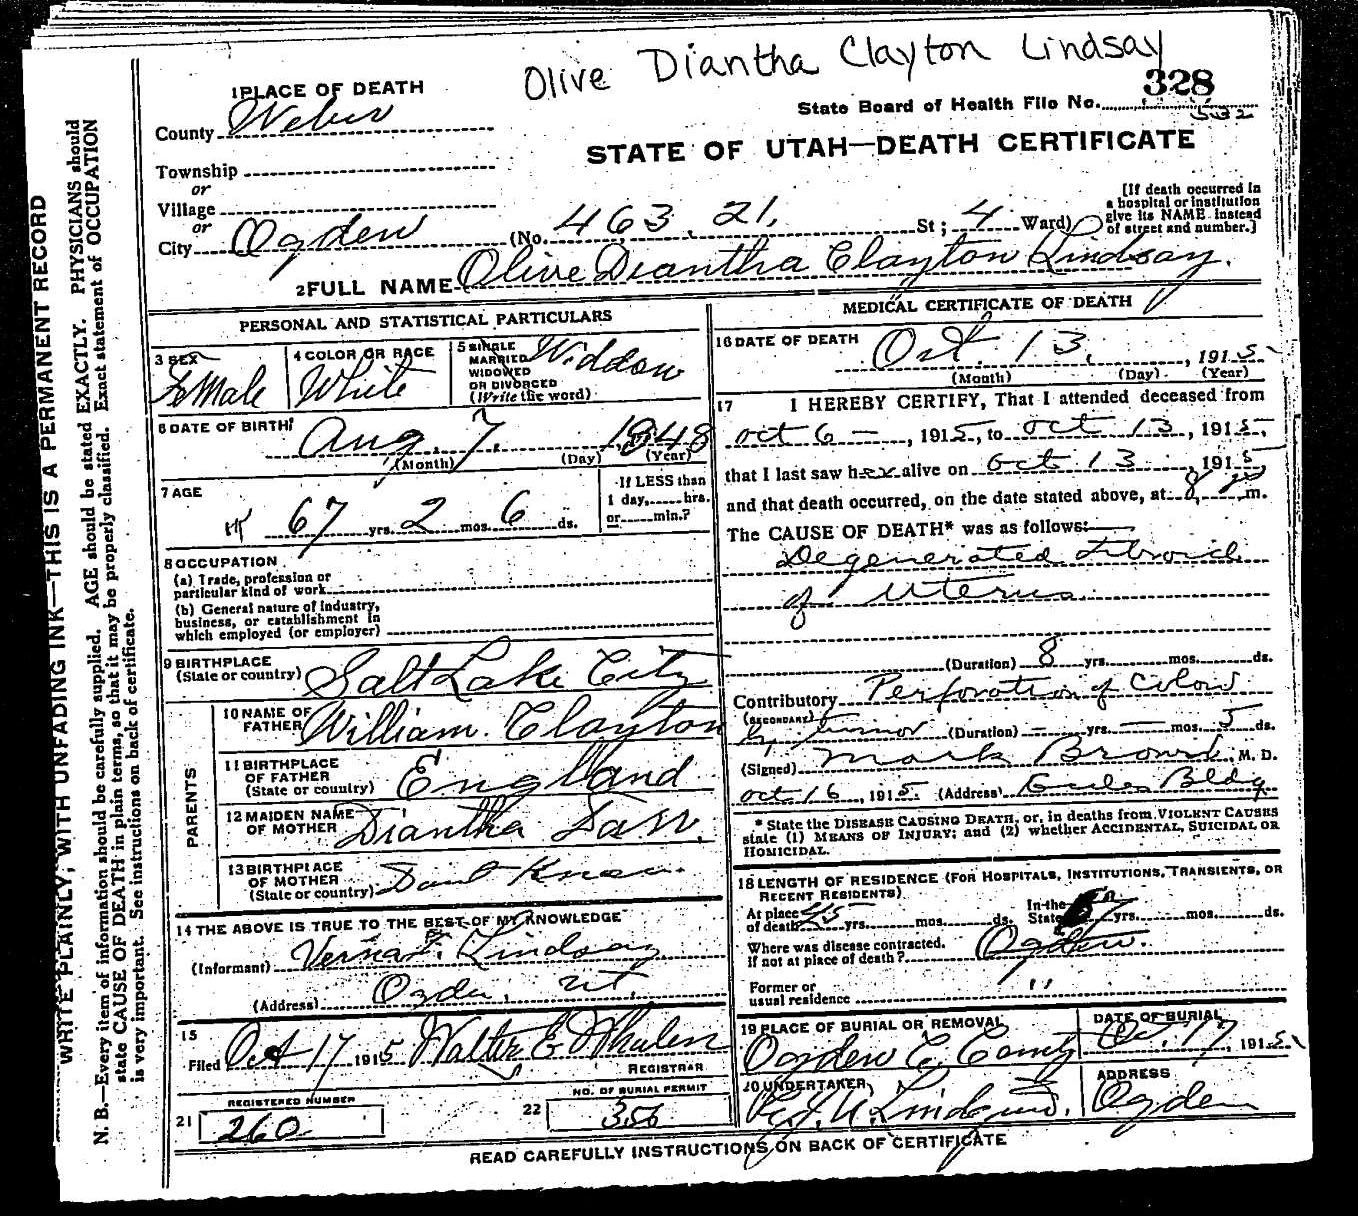 Olive Diantha Clayton Lindsay
1 PLACE OF DEATH
County Weber
State Board of Health File No. 328
532
STATE OF UTAH—DEATH CERTIFICATE
Township
or
Village
or
City Ogden (No. 463. 21. St; 4 Ward)
[If death occurred in a hospital or institution give its NAME instead of street and number.]
2 FULL NAME Olive Diantha Clayton Lindsay.
PERSONAL AND STATISTICAL PARTICULARS
3 SEX Female
4 COLOR OR RACE White
5 SINGLE MARRIED WIDOWED OR DIVORCED (Write the word) Widdow
6 DATE OF BIRTH Aug. 7. 1848
(Month) (Day) (Year)
7 AGE 67 yrs. 2 mos. 6 ds.
If LESS than 1 day, hrs. or min.?
8 OCCUPATION
(a) Trade, profession or particular kind of work
(b) General nature of industry, business, or establishment in which employed (or employer)
9 BIRTHPLACE (State or country) Salt Lake City
PARENTS
10 NAME OF FATHER William Clayton
11 BIRTHPLACE OF FATHER (State or country) England
12 MAIDEN NAME OF MOTHER Diantha Farr.
13 BIRTHPLACE OF MOTHER (State or country) Dont Know.
14 THE ABOVE IS TRUE TO THE BEST OF MY KNOWLEDGE
(Informant) Verna F. Lindsay
(Address) Ogden, Ut.
15
Filed Oct 17 1915 Walter E Whalen
REGISTRAR
REGISTERED NUMBER
21 260
NO. OF BURIAL PERMIT
22 356
MEDICAL CERTIFICATE OF DEATH
16 DATE OF DEATH Oct. 13, 1915
(Month) (Day) (Year)
17 I HEREBY CERTIFY, That I attended deceased from
oct 6 —, 1915, to oct 13, 1915,
that I last saw her alive on oct 13 1915
and that death occurred, on the date stated above, at 8 p m.
The CAUSE OF DEATH* was as follows:
Degenerated Fibroid
of Uterus
(Duration) 8 yrs. mos. ds.
Contributory Perforation of Colon
(SECONDARY) by tumor (Duration) — yrs. — mos. 5 ds.
(Signed) Mark Brown, M. D.
oct 16, 1915. (Address) Eccles Bldg
* State the DISEASE CAUSING DEATH, or, in deaths from VIOLENT CAUSES
state (1) MEANS OF INJURY; and (2) whether ACCIDENTAL, SUICIDAL OR
HOMICIDAL.
18 LENGTH OF RESIDENCE (FOR HOSPITALS, INSTITUTIONS, TRANSIENTS, OR
RECENT RESIDENTS)
At place of death 45 yrs. mos. ds. In the State 67 yrs. mos. ds.
Where was disease contracted. If not at place of death? Ogden.
Former or usual residence "
19 PLACE OF BURIAL OR REMOVAL Ogden C. Cemty
DATE OF BURIAL Oct. 17, 1915
20 UNDERTAKER Lindquist.
ADDRESS Ogden
READ CAREFULLY INSTRUCTIONS ON BACK OF CERTIFICATE
WRITE PLAINLY, WITH UNFADING INK—THIS IS A PERMANENT RECORD
N. B.—Every item of information should be carefully supplied. AGE should be stated EXACTLY. PHYSICIANS should
state CAUSE OF DEATH in plain terms, so that it may be properly classified. Exact statement of OCCUPATION
is very important. See instructions on back of certificate.